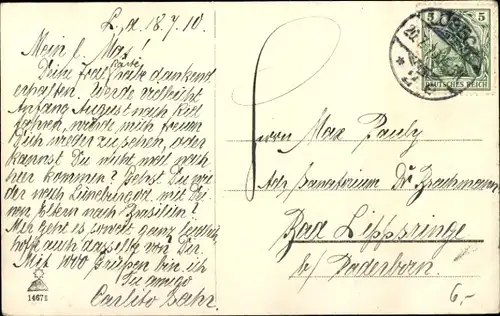 L, d. 18.7.10.
Mein l. Max!
Deine Karte dankend
erhalten. Werde vielleicht
Anfang August nach Kiel
fahren, würde mich freuen
Dich wieder zu sehen, oder
kannst Du nicht mal nach
hier kommen? Gehst Du
wieder nach Lüneburg od. mit Dei
nen Eltern nach Brasilien?
Mir geht es soweit ganz
hoffe auch dasselbe von Dir.
Mit 1000 Grüßen bin ich
Tu amigo
Carlito
14678
5 5
DEUTSCHES REICH
Herrn Max Pauly
Adr. Sanatorium Dr.
Bad Lippspringe
b/ Paderborn.
6,-